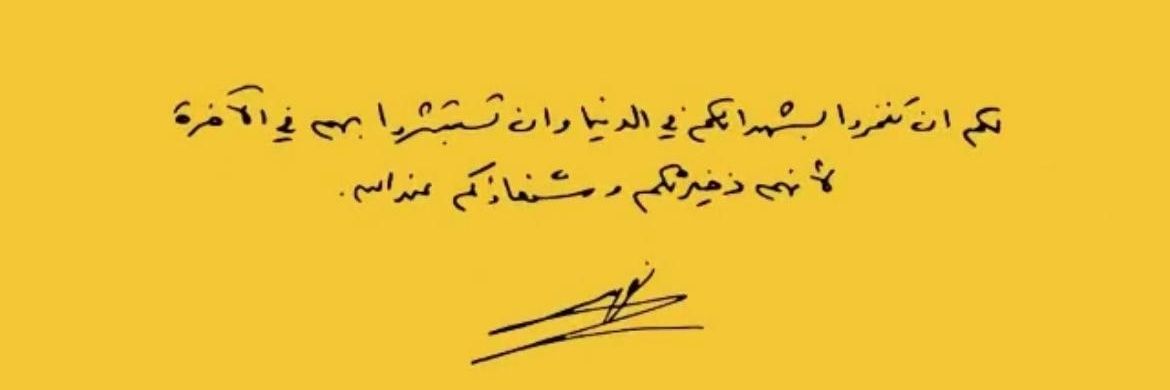 لكم ان تفخروا بشهدائكم في الدنيا وان تستبشروا بهم في الآخرة
لأنهم ذخيرتكم وشفعاؤكم عند الله.